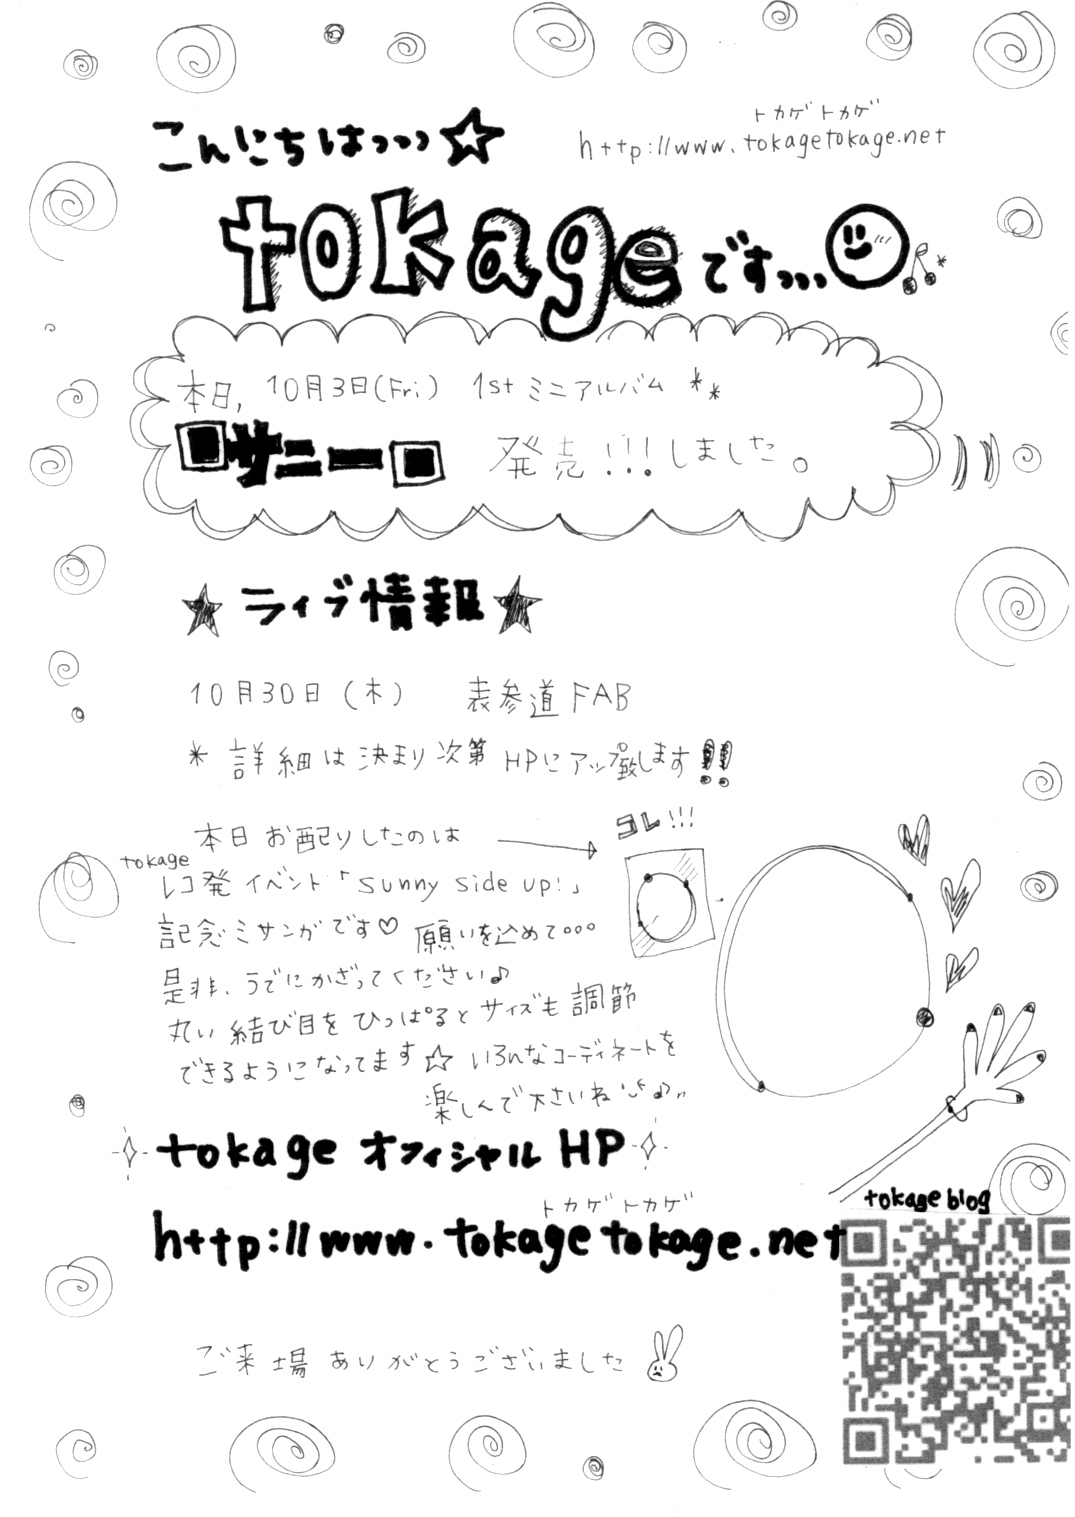 トカゲトカゲ
こんにちはっっっ☆ http://www.tokagetokage.net
tokageですっっっ
本日, 10月3日(Fri) 1stミニアルバム **
サニー 発売!!!しました。
★ライブ情報★
10月30日(木) 表参道FAB
* 詳細は決まり次第HPにアップ致します!!
本日お配りしたのは → コレ!!!
tokage
レコ発イベント「sunny side up!」
記念ミサンガです♡ 願いを込めて°°°
是非、うでにかざってください♪
丸い結び目をひっぱるとサイズも調節
できるようになってます☆ いろんなコーディネートを
楽しんで下さいね♪
tokage オフィシャルHP
トカゲトカゲ
http://www.tokagetokage.net
tokage blog
ご来場ありがとうございました